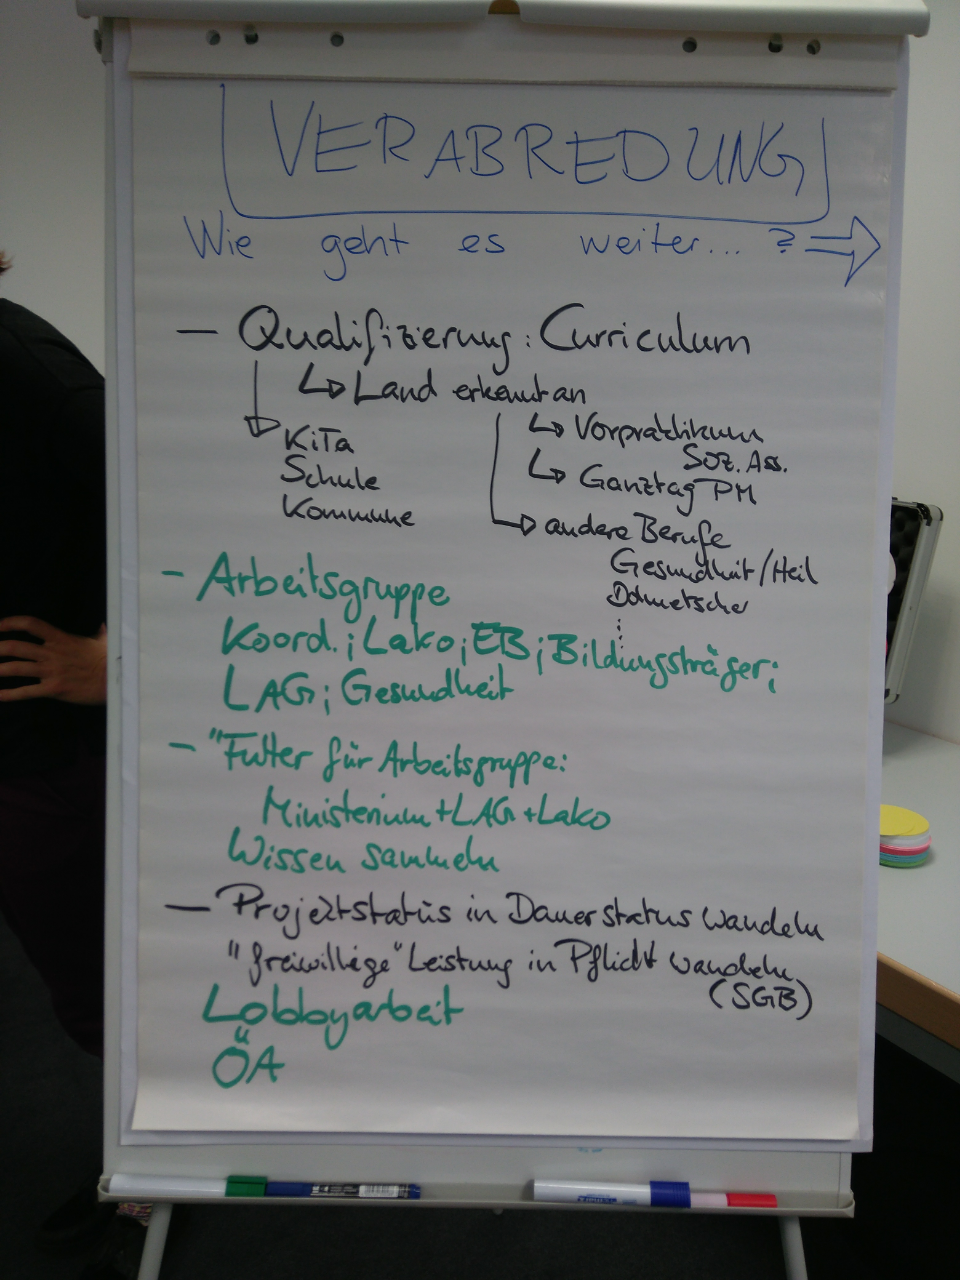 VERABREDUNG
Wie geht es weiter... ? ⇒
— Qualifizierung: Curriculum
↳ Land erkennt an
↳ Vorpraktikum
KiTa
Soz. Ass.
Schule
↳ Ganztag PM
Kommune
→ andere Berufe
Gesundheit/Heil
Dolmetscher
⋮
- Arbeitsgruppe
Koord.; Lako; EB; Bildungsträger;
LAG; Gesundheit
- "Futter für Arbeitsgruppe:
Ministerium + LAG + Lako
Wissen sammeln
— Projektstatus in Dauerstatus wandeln
"freiwillige" Leistung in Pflicht wandeln
(SGB)
Lobbyarbeit
ÖA